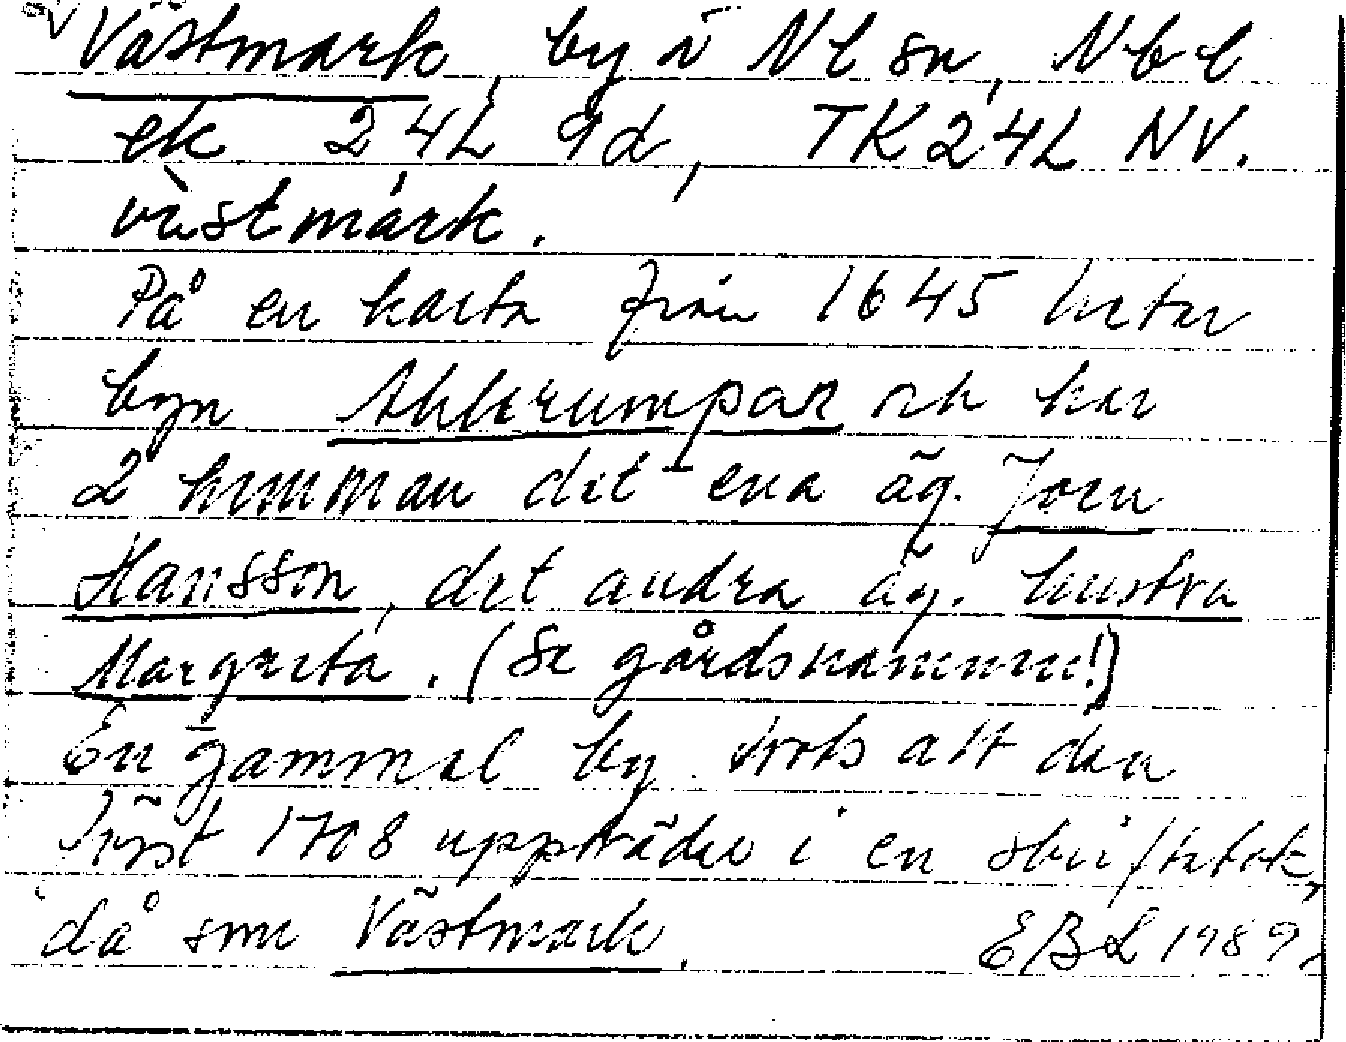 Västmark, by i Nl sn, Nbl
ek 24L 9d, TK24L NV.
vàstmárk.
På en karta från 1645 heter
byn Ahlerumpan och har
2 hemman det ena äg. Joen
Hansson, det andra äg. hustra
Margreta. (Se gårdsnamnen!)
En gammal by trots att den
först 1708 uppträder i en skriftebok,
då som Västmark. EBL 1989.